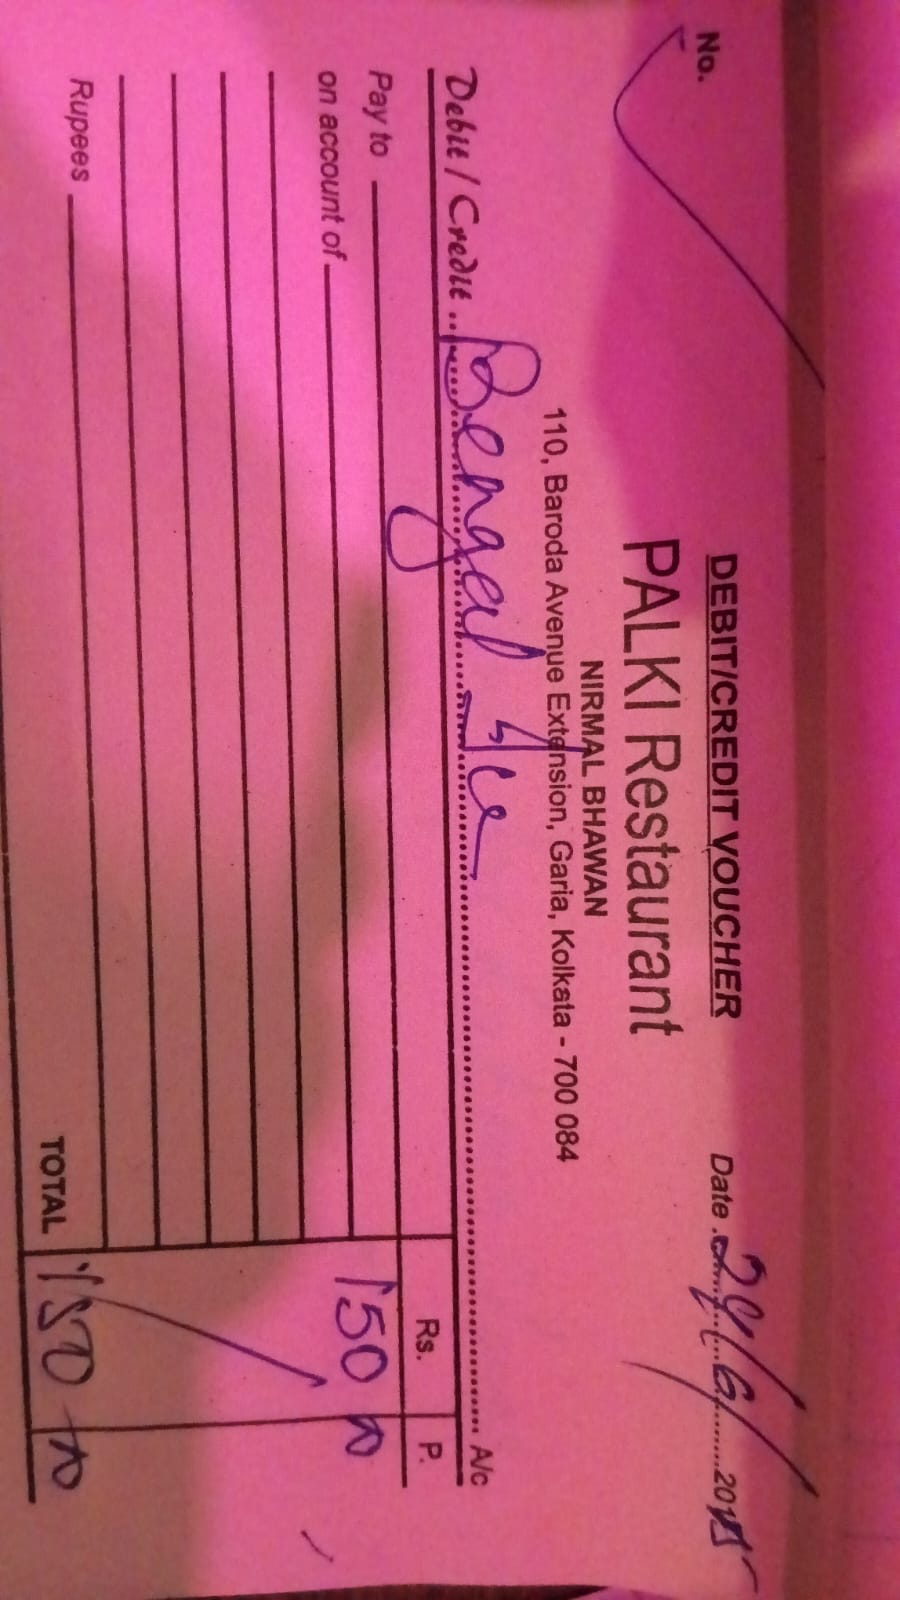 DEBIT/CREDIT VOUCHER
No.
Date 29/6/ 2015
PALKI Restaurant
NIRMAL BHAWAN
110, Baroda Avenue Extension, Garia, Kolkata - 700 084
Debit / Credit Bengal Ice A/c
Rs. P.
Pay to 150
on account of
Rupees
TOTAL 150